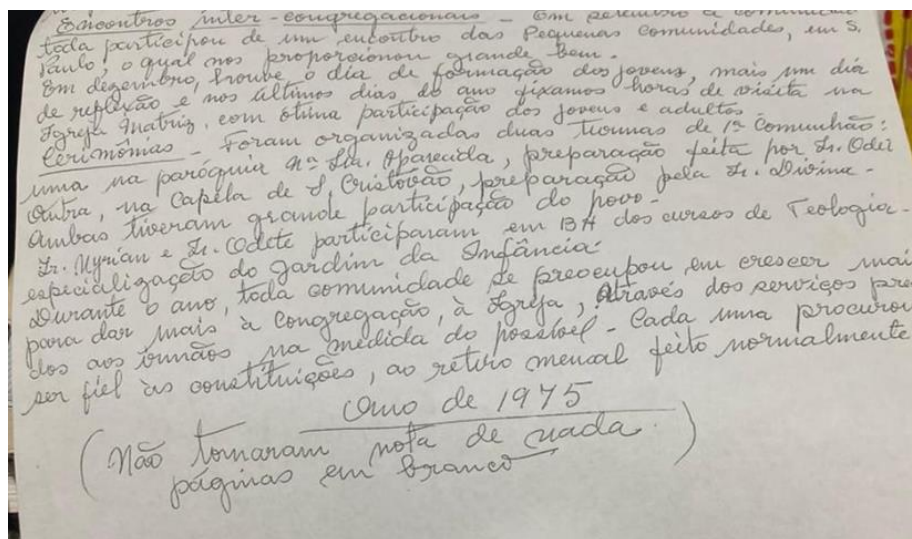 Encontros inter-congregacionais - Em setembro a comunidade
toda participou de um encontro das Pequenas Comunidades, em S.
Paulo, o qual nos proporcionou grande bem.
Em dezembro, houve o dia de formação dos jovens, mais um dia
de reflexão e nos últimos dias do ano fixamos horas de visita na
Igreja Matriz, com ótima participação dos jovens e adultos.
Cerimônias - Foram organizadas duas turmas de 1ª Comunhão:
uma na paróquia Nª Sra. Aparecida, preparação feita por Ir.
Outra, na Capela de S. Cristovão, preparação pela Ir. Divina -
Ambas tiveram grande participação do povo -
Ir. Myrian e Ir. Odete participaram em BH dos cursos de Teologia -
especialização do Jardim da Infância.
Durante o ano, toda comunidade se preocupou em crescer mais
para dar mais à Congregação, à Igreja, através dos serviços pre
dos aos irmãos, na medida do possível - Cada uma procurou
ser fiel às constituições, ao retiro mensal feito normalmente
Ano de 1975
(Não tomaram nota de nada.
páginas em branco)